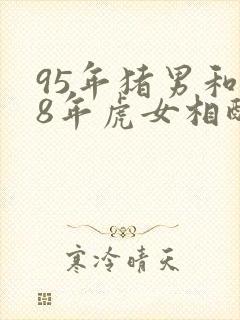 95年猪男和
8年虎女相配
寒冷晴天